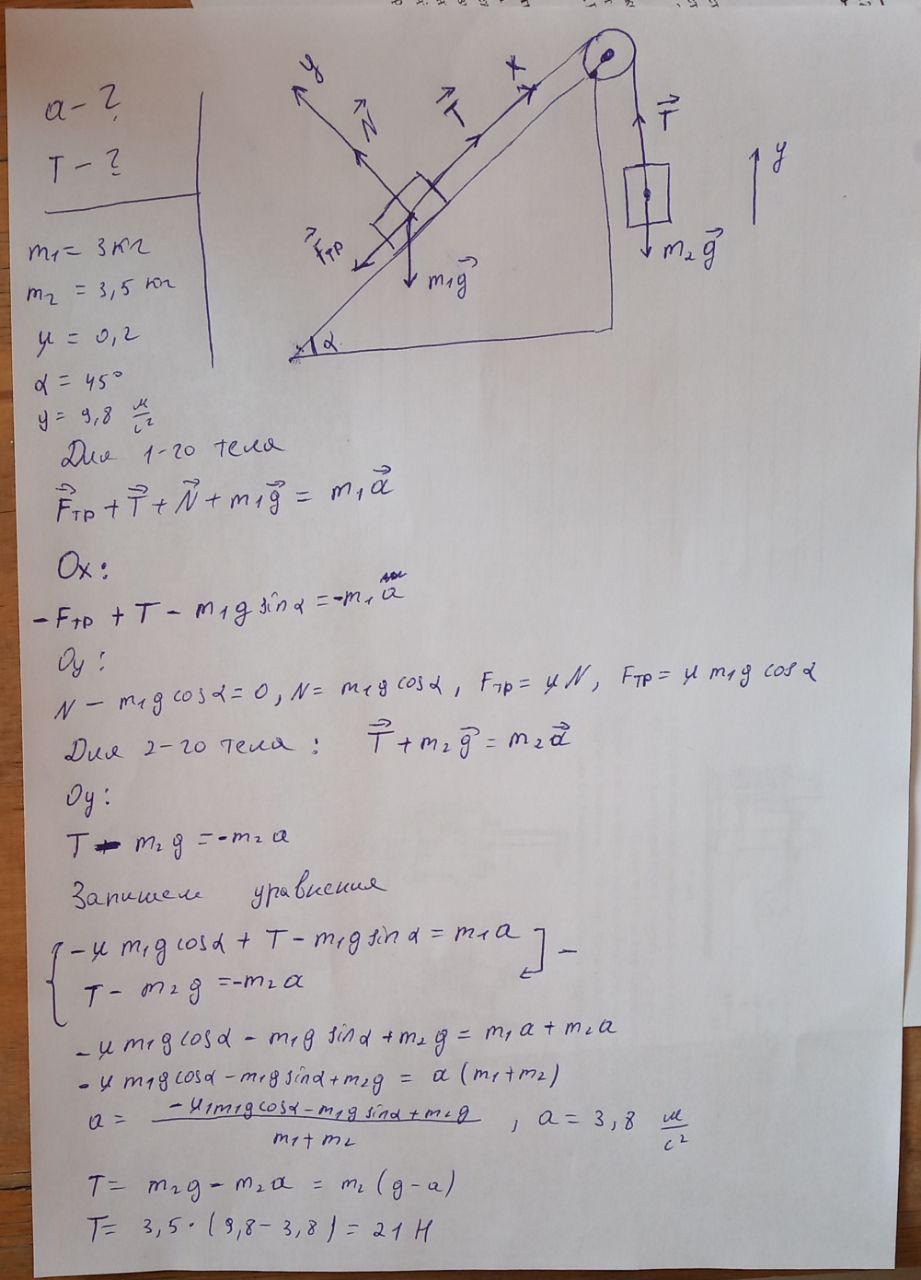 a - ?
T - ?
m₁ = 3 кг
m₂ = 3,5 кг
μ = 0,2
α = 45°
g = 9,8 м/с²
y
N⃗
T⃗
x
F⃗тр
m₁g⃗
α
T⃗
y
m₂g⃗
Для 1-го тела
F⃗тр + T⃗ + N⃗ + m₁g⃗ = m₁a⃗
Ox:
-Fтр + T - m₁g sinα = -m₁a
Oy:
N - m₁g cosα = 0, N = m₁g cosα, Fтр = μN, Fтр = μ m₁g cosα
Для 2-го тела: T⃗ + m₂g⃗ = m₂a⃗
Oy:
T - m₂g = -m₂a
Запишем уравнения
-μ m₁g cosα + T - m₁g sinα = m₁a
T - m₂g = -m₂a
-
-μ m₁g cosα - m₁g sinα + m₂g = m₁a + m₂a
-μ m₁g cosα - m₁g sinα + m₂g = a (m₁ + m₂)
a = (-μ₁m₁g cosα - m₁g sinα + m₂g) / (m₁ + m₂), a = 3,8 м/с²
T = m₂g - m₂a = m₂(g - a)
T = 3,5·(9,8 - 3,8) = 21 Н